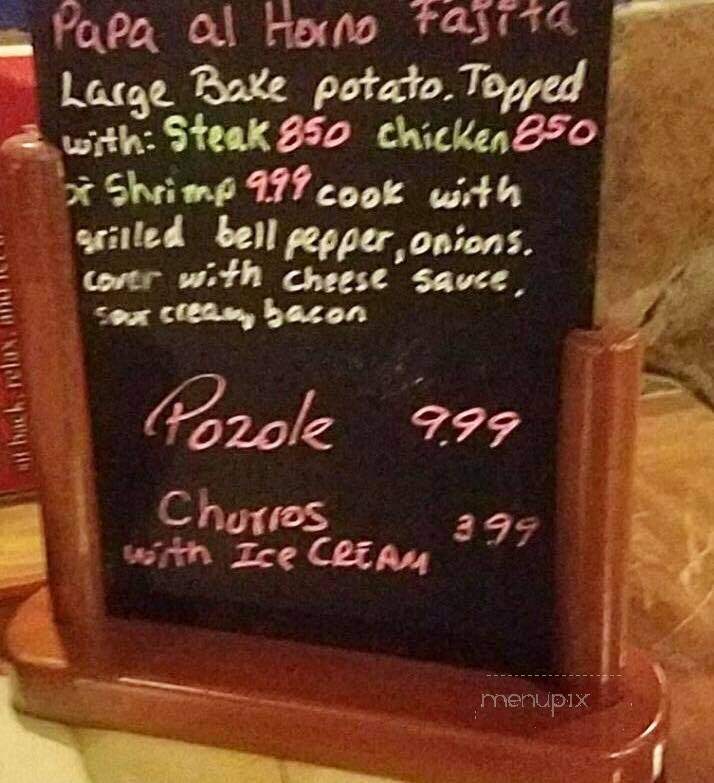 Papa al Horno Fajita
Large Bake potato. Topped
with: Steak 850 chicken 850
or Shrimp 9.99 cook with
grilled bell pepper, onions.
cover with cheese sauce,
sour cream, bacon
Pozole 9.99
Churros 3.99
with Ice CREAM
sit back, relax, and
menupix